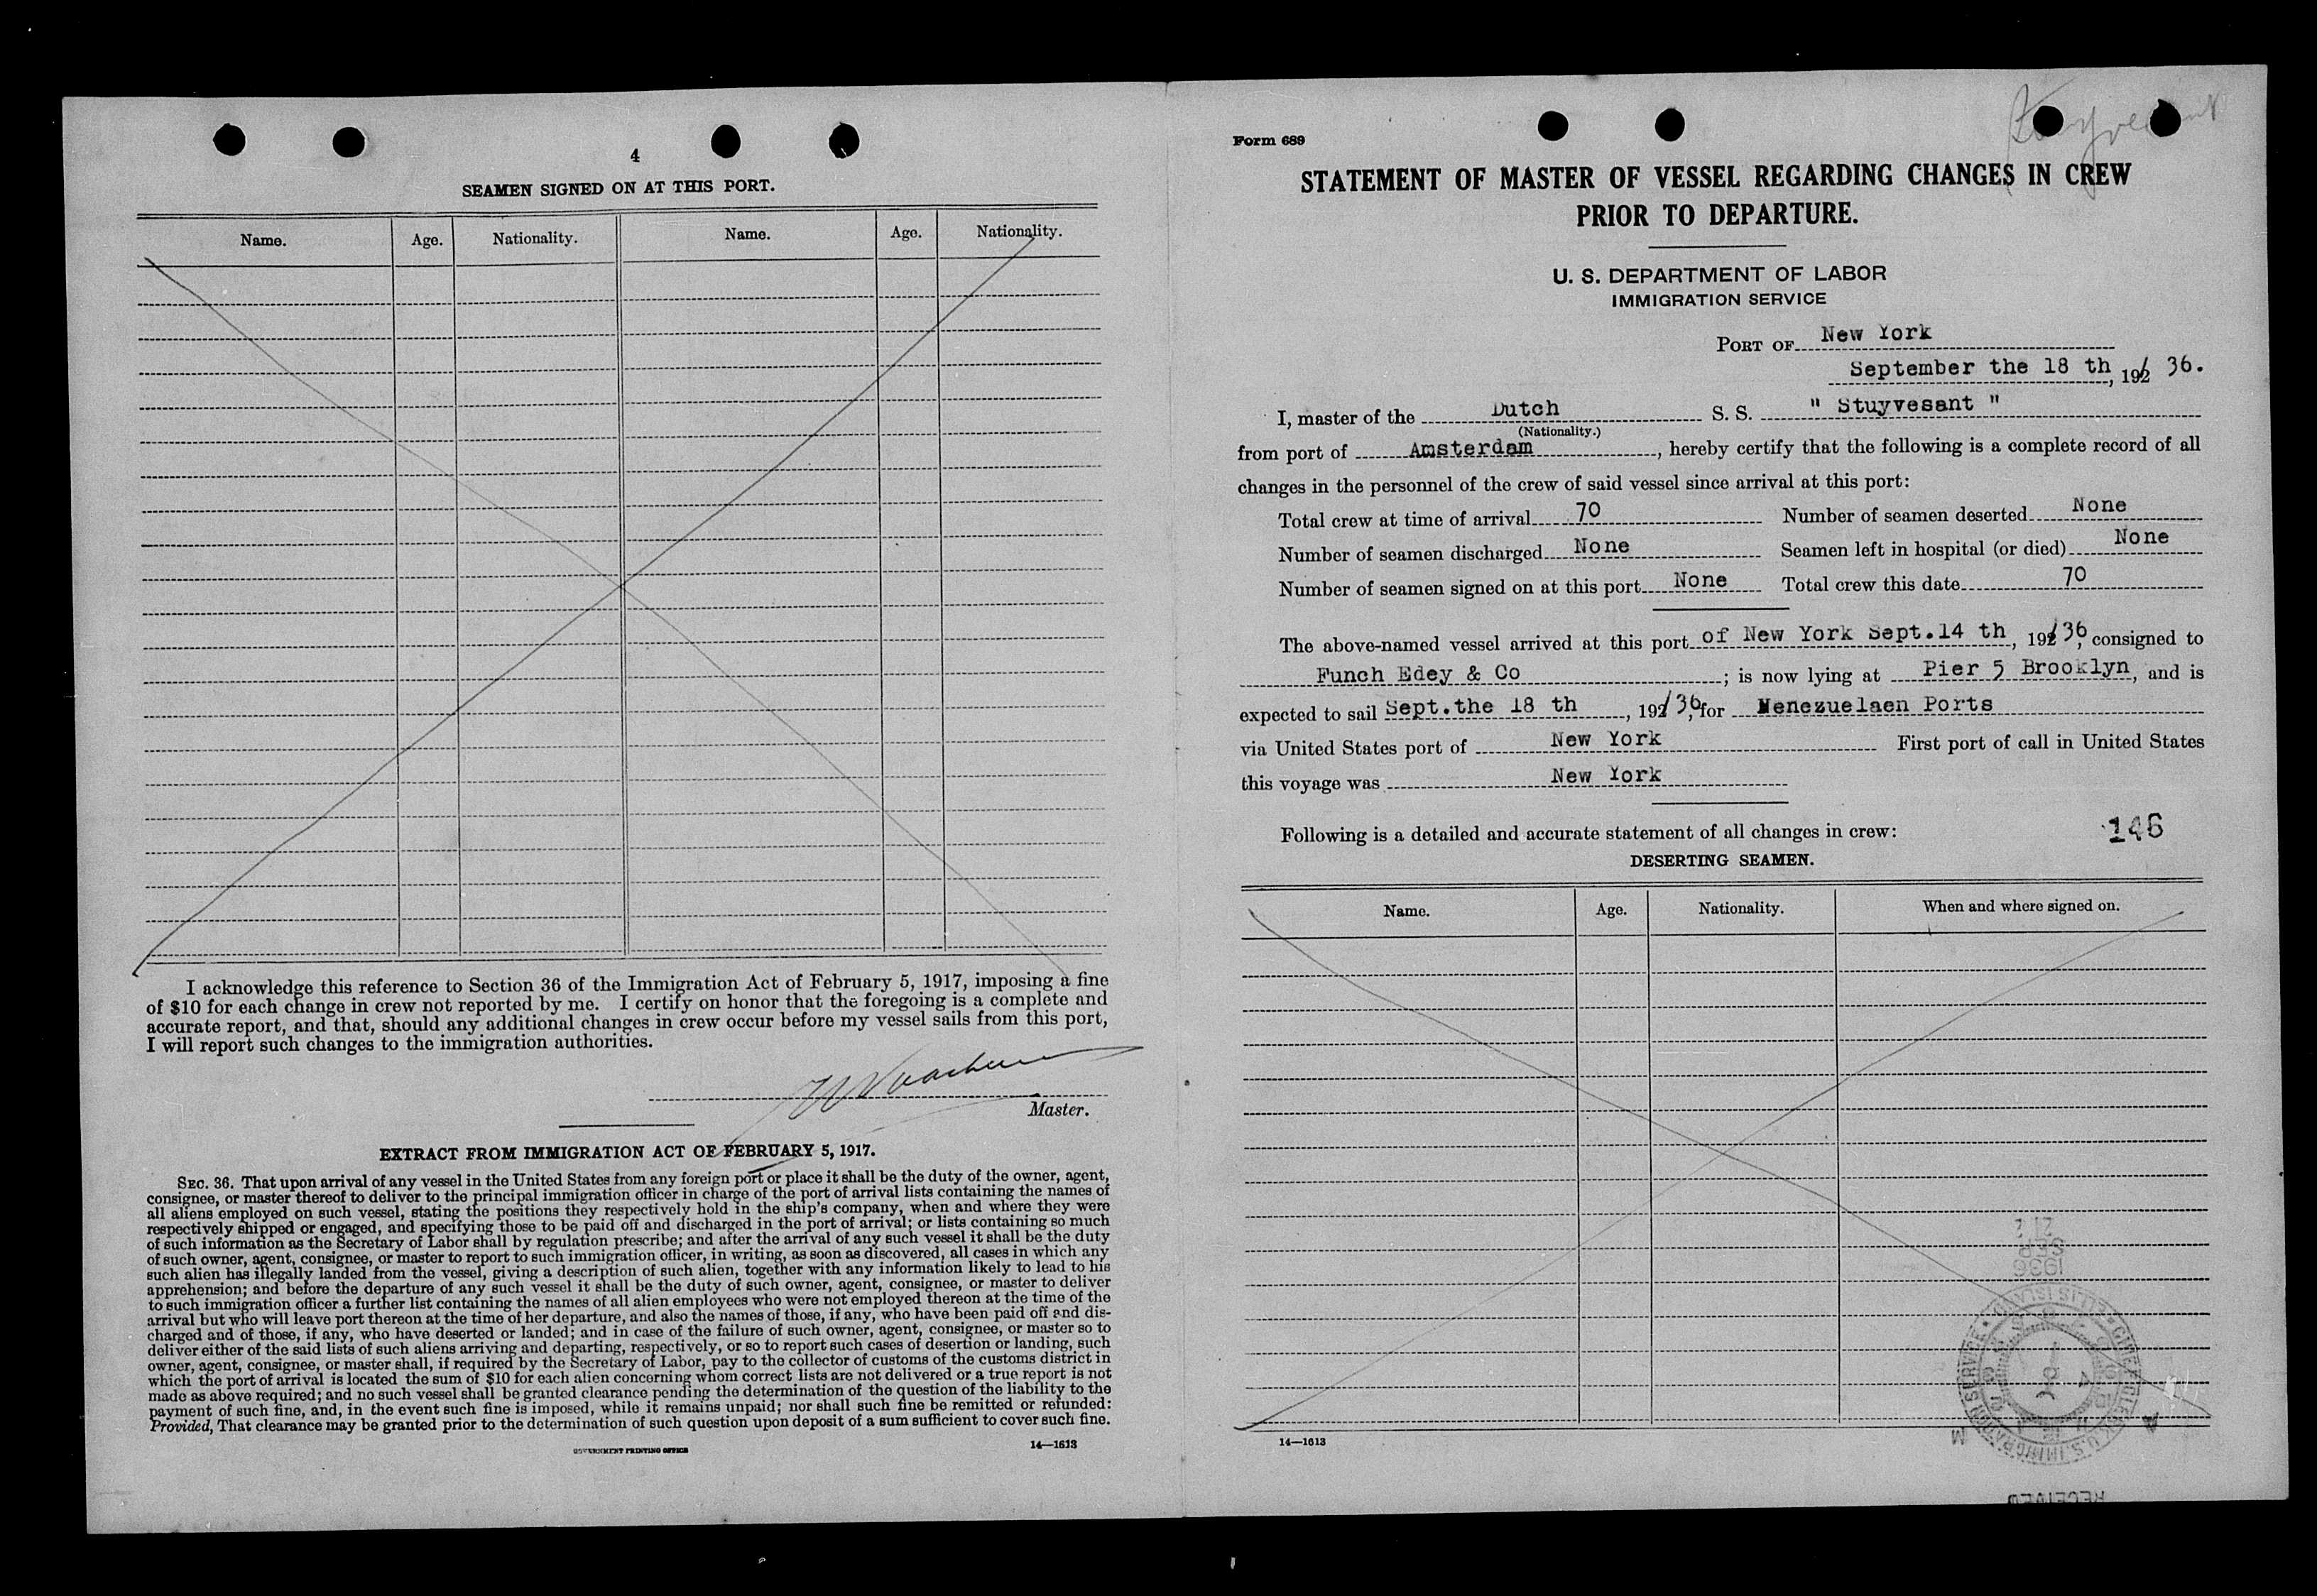 4
SEAMEN SIGNED ON AT THIS PORT.
Name. Age. Nationality. Name. Age. Nationality.
I acknowledge this reference to Section 36 of the Immigration Act of February 5, 1917, imposing a fine
of $10 for each change in crew not reported by me. I certify on honor that the foregoing is a complete and
accurate report, and that, should any additional changes in crew occur before my vessel sails from this port,
I will report such changes to the immigration authorities.
Master.
EXTRACT FROM IMMIGRATION ACT OF FEBRUARY 5, 1917.
SEC. 36. That upon arrival of any vessel in the United States from any foreign port or place it shall be the duty of the owner, agent,
consignee, or master thereof to deliver to the principal immigration officer in charge of the port of arrival lists containing the names of
all aliens employed on such vessel, stating the positions they respectively hold in the ship's company, when and where they were
respectively shipped or engaged, and specifying those to be paid off and discharged in the port of arrival; or lists containing so much
of such information as the Secretary of Labor shall by regulation prescribe; and after the arrival of any such vessel it shall be the duty
of such owner, agent, consignee, or master to report to such immigration officer, in writing, as soon as discovered, all cases in which any
such alien has illegally landed from the vessel, giving a description of such alien, together with any information likely to lead to his
apprehension; and before the departure of any such vessel it shall be the duty of such owner, agent, consignee, or master to deliver
to such immigration officer a further list containing the names of all alien employees who were not employed thereon at the time of the
arrival but who will leave port thereon at the time of her departure, and also the names of those, if any, who have been paid off and dis-
charged and of those, if any, who have deserted or landed; and in case of the failure of such owner, agent, consignee, or master so to
deliver either of the said lists of such aliens arriving and departing, respectively, or so to report such cases of desertion or landing, such
owner, agent, consignee, or master shall, if required by the Secretary of Labor, pay to the collector of customs of the customs district in
which the port of arrival is located the sum of $10 for each alien concerning whom correct lists are not delivered or a true report is not
made as above required; and no such vessel shall be granted clearance pending the determination of the question of the liability to the
payment of such fine, and, in the event such fine is imposed, while it remains unpaid; nor shall such fine be remitted or refunded:
Provided, That clearance may be granted prior to the determination of such question upon deposit of a sum sufficient to cover such fine.
GOVERNMENT PRINTING OFFICE 14—1613
Form 689
STATEMENT OF MASTER OF VESSEL REGARDING CHANGES IN CREW
PRIOR TO DEPARTURE.
U. S. DEPARTMENT OF LABOR
IMMIGRATION SERVICE
PORT OF New York
September the 18 th, 192 36.
I, master of the Dutch S. S. " Stuyvesant "
(Nationality.)
from port of Amsterdam, hereby certify that the following is a complete record of all
changes in the personnel of the crew of said vessel since arrival at this port:
Total crew at time of arrival 70 Number of seamen deserted None
Number of seamen discharged None Seamen left in hospital (or died) None
Number of seamen signed on at this port None Total crew this date 70
The above-named vessel arrived at this port of New York Sept.14 th, 192 36, consigned to
Funch Edey & Co ; is now lying at Pier 5 Brooklyn, and is
expected to sail Sept.the 18 th, 192 36, for Venezuelaen Ports
via United States port of New York First port of call in United States
this voyage was New York
Following is a detailed and accurate statement of all changes in crew: 146
DESERTING SEAMEN.
Name. Age. Nationality. When and where signed on.
SEP
1936
ELLIS ISLAND
CHIEF CLERK U.S. IMMIGRATION SERVICE
14—1613
RECEIVED